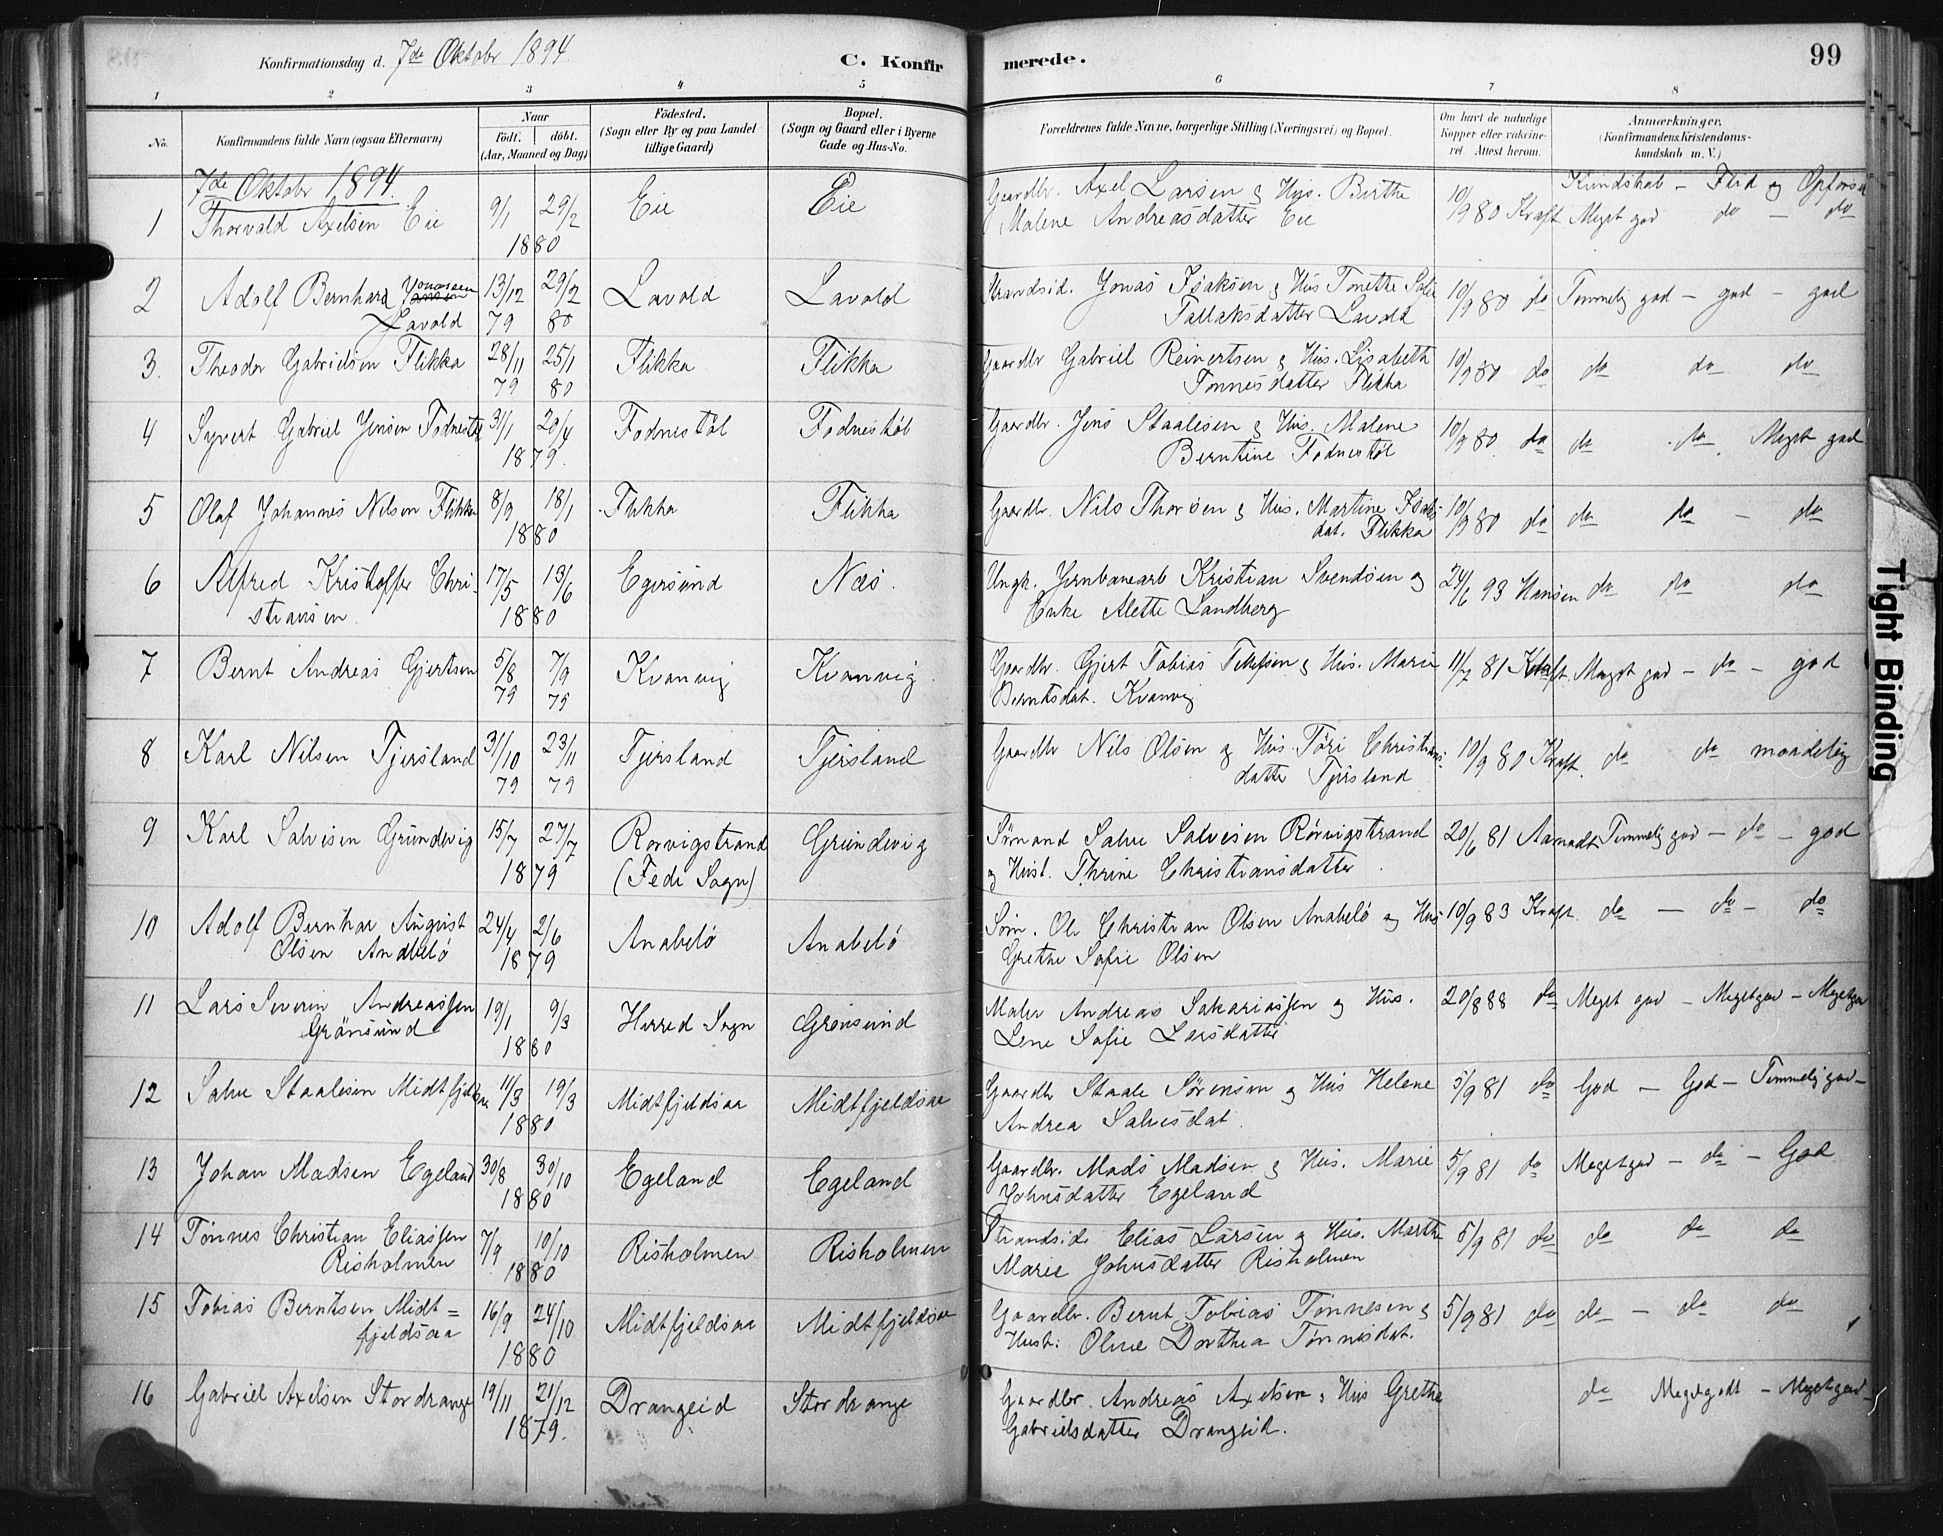 Konfirmationsdag d. 7de Oktobr 1894.
C. Konfir
merede.
99
1 2 3 4 5 6 7 8
No.
Konfirmandens fulde Navn (ogsaa Efternavn)
Naar
födt. döbt.
(Aar, Maaned og Dag)
Födested.
(Sogn eller By og paa Landet
tillige Gaard)
Bopæl.
(Sogn og Gaard eller i Byerne
Gade og Hus-No.
Forældrenes fulde Navne, borgerlige Stilling (Næringsvei) og Bopæl.
Om havt de naturlige
Kopper eller vakcine-
ret. Attest herom.
Anmærkninger.
(Konfirmandens Kristendoms-
kundskab m. V.)
7de Oktobr 1894.
Kundskab - Flid og Opførsel
1 Thorvald Axelsen Eie 9/1 29/2 1880 Eie Eie
Gaardbr. Axel Larsen & Hus. Birthe
Malene Andreasdatter Eie
10/9 80 Kraft Meget god do - do
2 Adolf Bernhard Jonassen
Lavold 13/12 79 29/2 80 Lavold Lavold
Strandsid. Jonas Isaksen & Hus Tonette Sofie
Tallaksdatter Lavold
10/9 80 do Temmelig god - god - god
3. Theodor Gabrielsen Flikka 28/11 79 25/1 80 Flikka Flikka
Gaardbr Gabriel Reinertsen & Hus. Lisabeth
Tønnesdatter Flikka
10/9 80 do do do do
4 Syvert Gabriel Jensen Fodnestøl 31/1 20/4 1879. Fodnestøl Fodnestøl
Gaardbr. Jens Staalesen & Hus. Malene
Berntine Fodnestøl
10/9 80. do do do Meget god
5 Olaf Johannes Nilsen Flikka 8/9 18/1 1880 Flikka Flikka
Gaardbr. Nils Thorsen & Hus. Martine Isaks-
dat. Flikka
10/9 80 do do do - do
6 Alfred Kristoffer Chri-
stiansen. 17/5 13/6 1880 Egersund Næs.
Ungk. Jernbanearb Kristian Svendsen og
Enke Alette Landberg
24/6 93 Hansen do do do
7 Bernt Andreas Gjertsen 5/8 79 7/9 79 Kvanvig Kvanvig
Gaardbr. Gjert Tobias Tellefsen & Hus. Marie
Berntsdat. Kvanvig
11/7 81 Kraft. Meget god - do - god
8 Karl Nilsen Tjersland 31/10 79 23/11 79 Tjersland Tjersland
Gaardbr Nils Olsen og Hus. Tøri Christians-
datter Tjersland
10/9 80 Kraft. do do maadelig
9 Karl Salvesen Grundevig 15/7 27/7 1879 Rorvigstrand
(Fede Sogn) Grundevig
Sømand Salve Salvesen Rörvigstrand
og Hust. Thrine Christiansdatter
20/6 81 Temmelig god - do - god
10 Adolf Bernhar August
Olsen Andbelö 24/4 2/6 1879 Anabelö Anabelö
Søm. Ole Christian Olsen Anabelö og Hus
Grethe Sofie Olsen
10/9 83 Kraft. do - do - do
11 Lars Severin Andreassen
Grönsund 19/1 9/3 1880 Herred Sogn Grønsund
Maler Andreas Sakariassen og Hus.
Lene Sofie Larsdatter
20/8 88 do Meget god - Meget god - Meget god
12 Salve Staalesen Midtfjeldsaa 11/3 19/3 1880 Midtfjeldsaa Midtfjeldsaa
Gaardbr Staale Sørensen og Hus Helene
Andrea Salvesdat.
5/9 81 do God - God - Temmelig god -
13 Johan Madsen Egeland 30/8 30/10 1880 Egeland Egeland
Gaardbr. Mads Madsen & Hus. Marie
Johnsdatter Egeland
5/9 81 do Meget god - do - God
14 Tönnes Christian Eliassen
Risholmen 7/9 10/10 1880 Risholmen Risholmen
Strandsid. Elias Larsen og Hus. Marthe
Marie Johnsdatter Risholmen
5/9 81 do do do do
15 Tobias Berntsen Midt=
fjeldsaa 16/9 24/10 1880 Midtfjeldsaa Midtfjeldsaa
Gaardbr. Bernt Tobias Tønnesen &
Hust: Oline Dorthea Tønnesdat.
5/9 81 do do - do do
16 Gabriel Axelsen Stordrange 19/11 21/12 1879. Drangeid Stordrange
Gaardbr. Andreas Axelsen & Hus Grethe
Gabrielsdatter Drangeid.
do Meget godt - Meget god -
Tight Binding